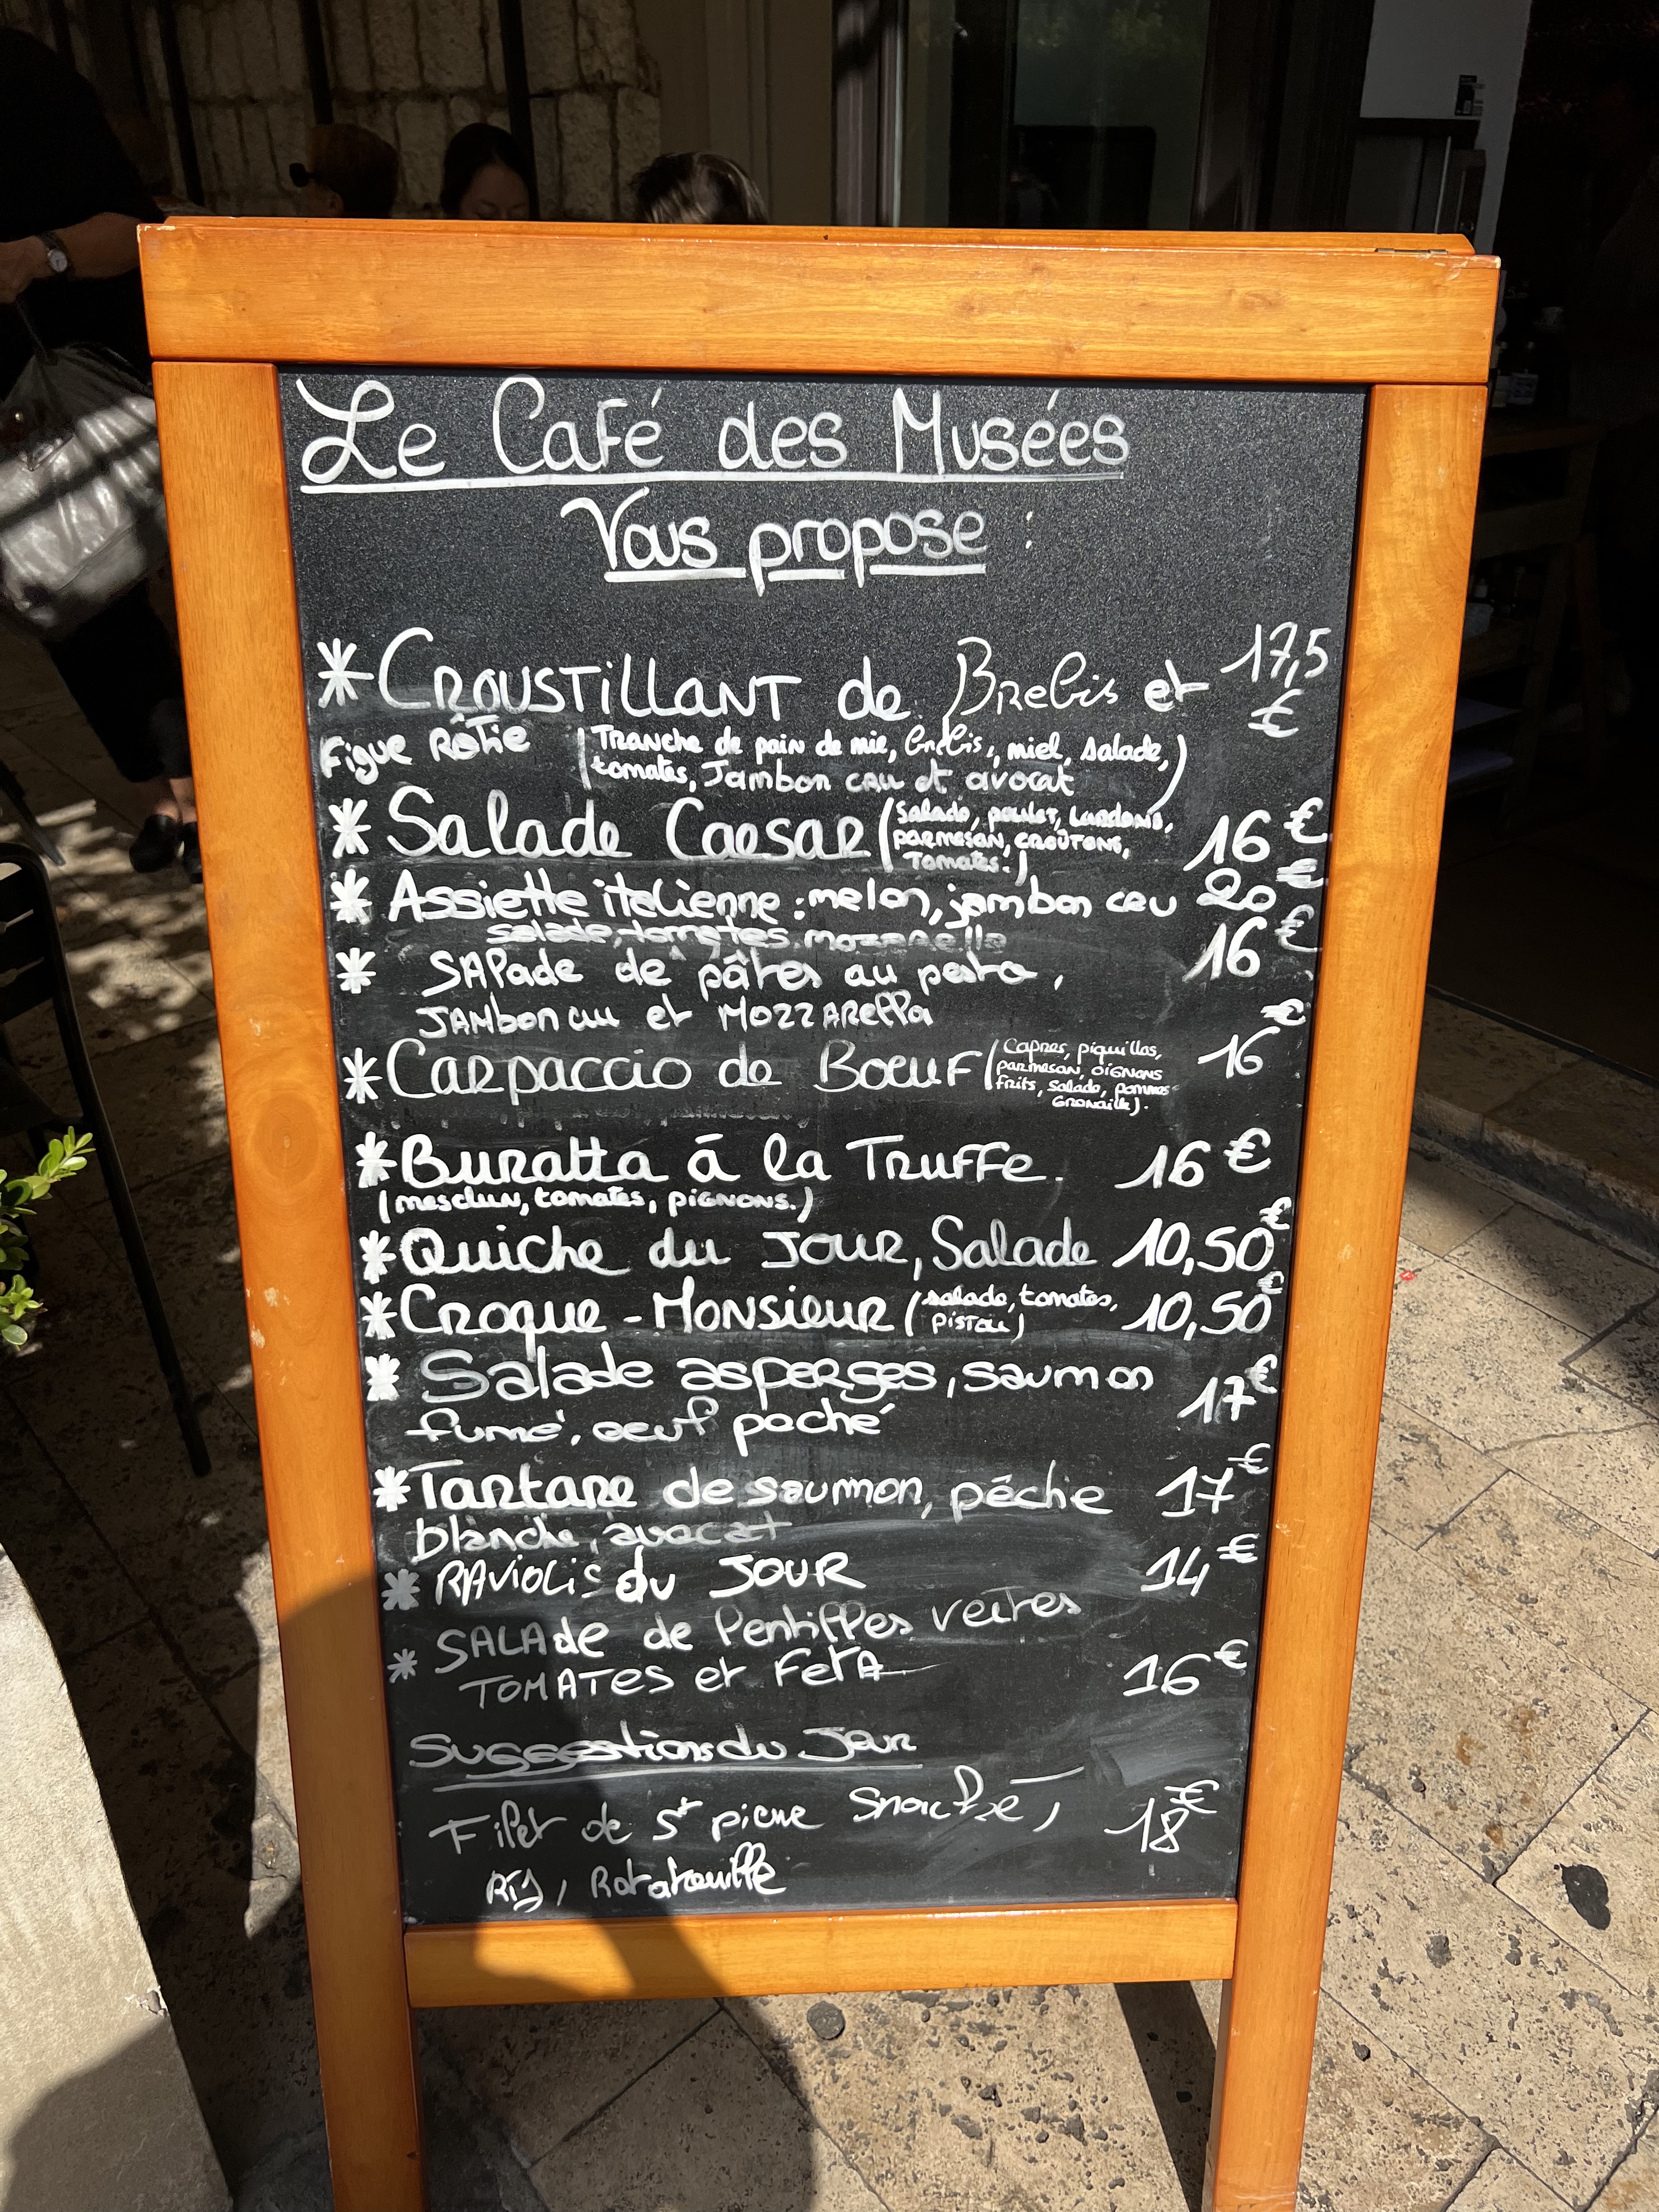 Le Café des Musées
Vous propose :
*Croustillant de Brebis et 17,5
€
Figue Rôtie (Tranche de pain de mie, brebis, miel, salade,
tomates, Jambon cru et avocat)
* Salade Caesar (Salade, poulet, Lardons, 16 €
parmesan, croûtons,
Tomates.)
* Assiette italienne : melon, jambon cru 20 €
salade, tomates, mozzarella
* SAlade de pâtes au pesto, 16 €
JAMbon cru et MozzARella
*Carpaccio de Boeuf (Capres, piquillos, 16 €
parmesan, oignons
frits, salade, pommes
Grenaille).
*Buratta à la Truffe. 16 €
(mesclun, tomates, pignons.)
*Quiche du Jour, Salade 10,50 €
*Croque-Monsieur (salade, tomates, 10,50 €
pistou)
* Salade asperges, saumon 17 €
fumé, oeuf poché
*Tartare de saumon, pêche 17 €
blanche, avocat
* RAviolis du JOUR 14 €
* SALAde de lentilles vertes
TOMATES et FetA 16 €
Suggestions du Jour
Filet de St pierre Snacké, 18 €
Riz, Ratatouille